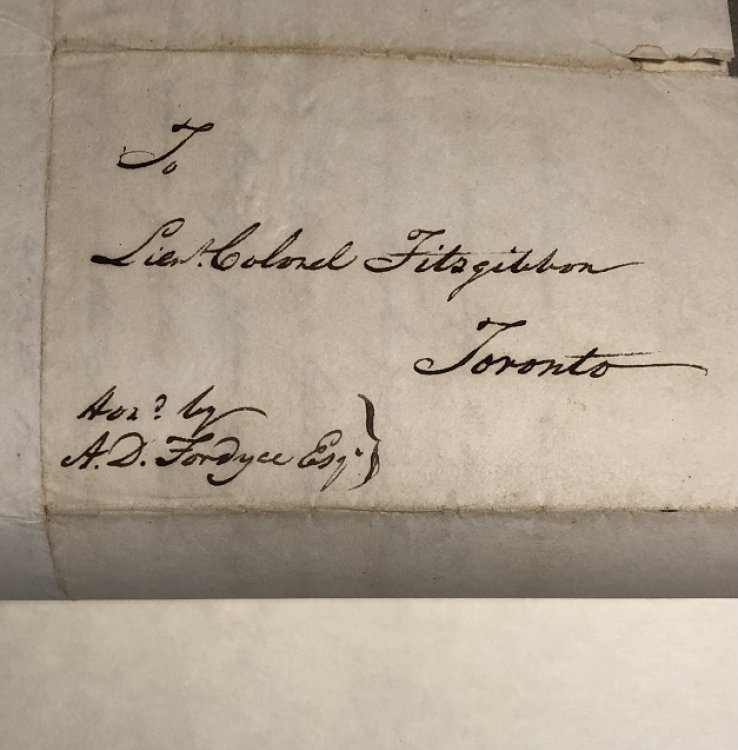 To
Lieut. Colonel Fitzgibbon
Toronto
Hond. by
A. D. Fordyce Esqr. }